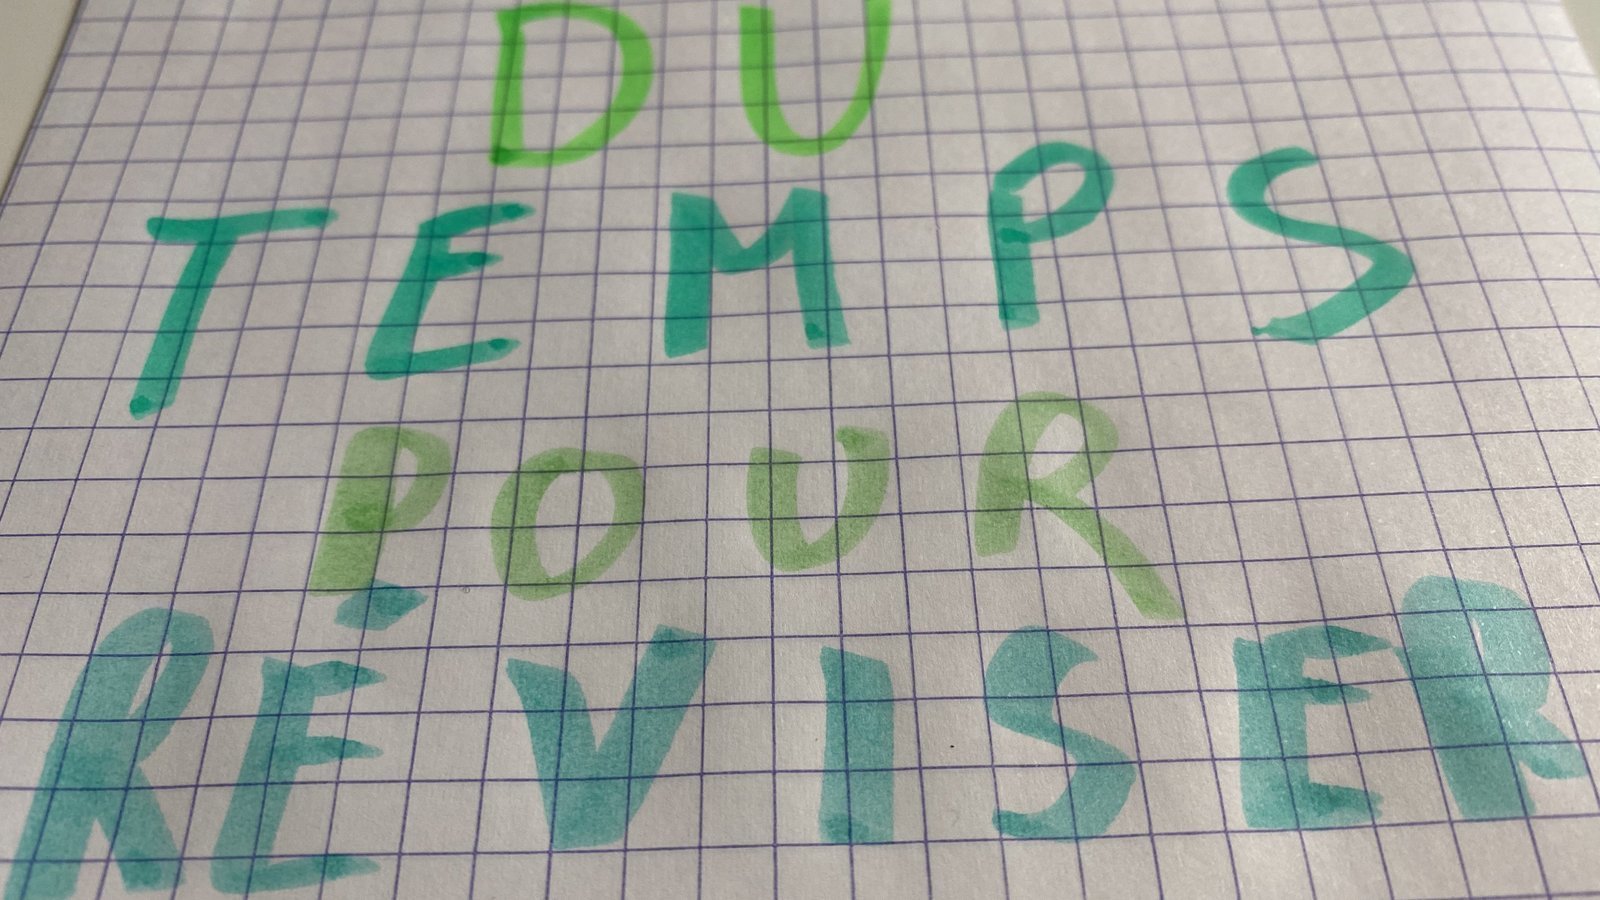 DU
TEMPS
POUR
RÉVISER